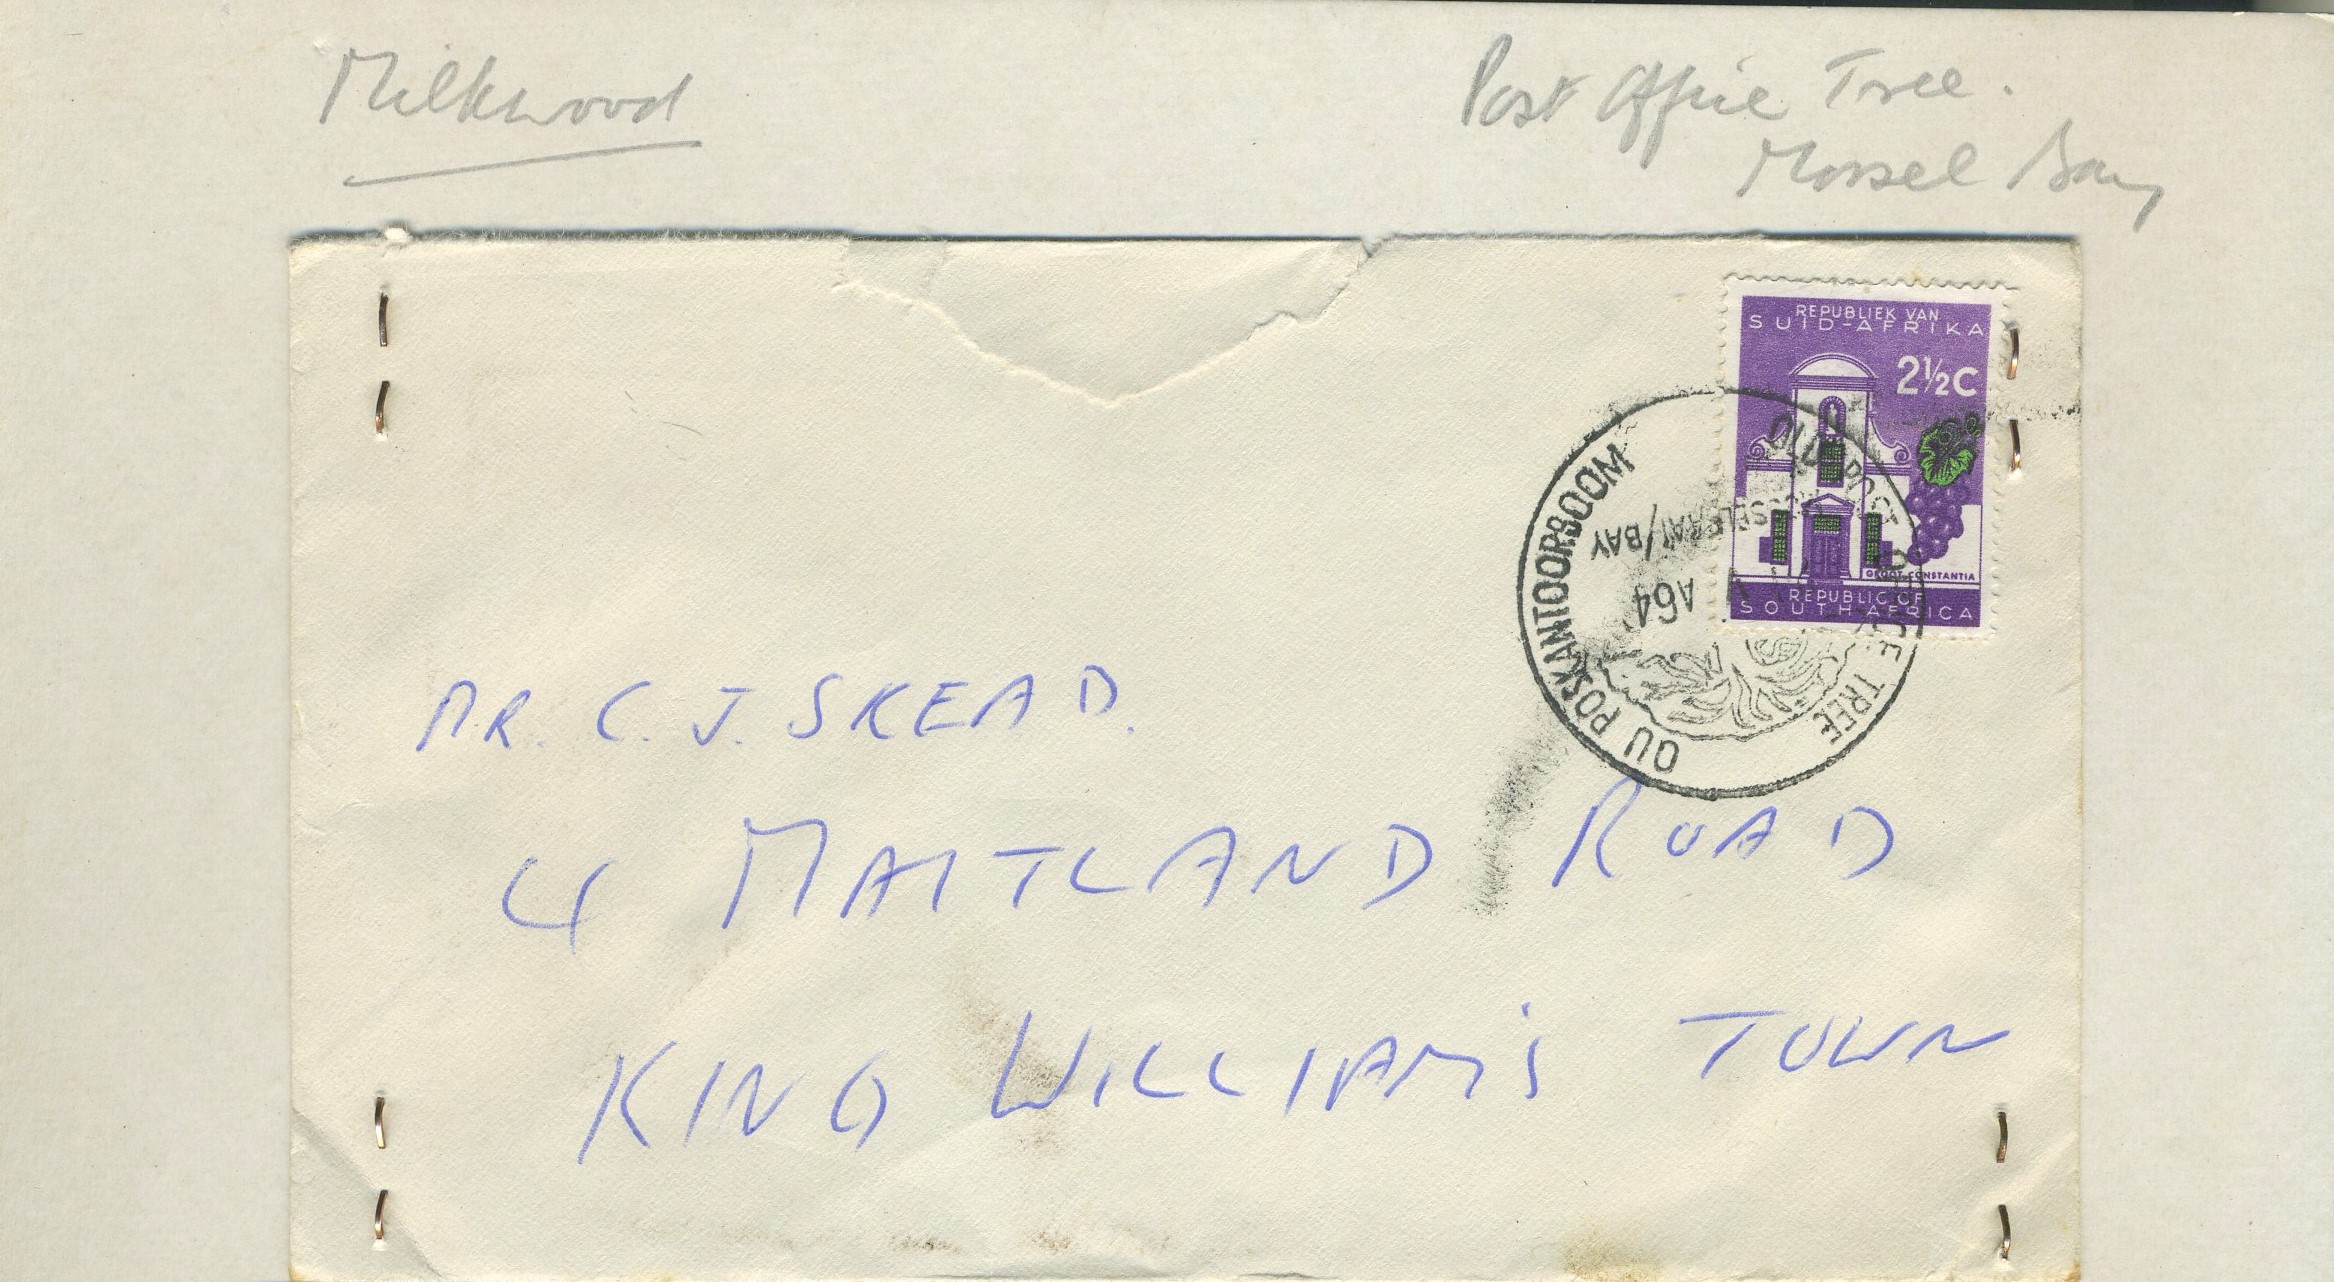 Milkwood
Post Office Tree.
Mossel Bay
REPUBLIEK VAN
SUID-AFRIKA
2½C
GROOT CONSTANTIA
REPUBLIC OF
SOUTH AFRICA
OU POSKANTOORBOOM
OLD POST OFFICE TREE
MOSSELBAAI/BAY
A64
MR. C. J. SKEAD.
4 MAITLAND ROAD
KING WILLIAM'S TOWN